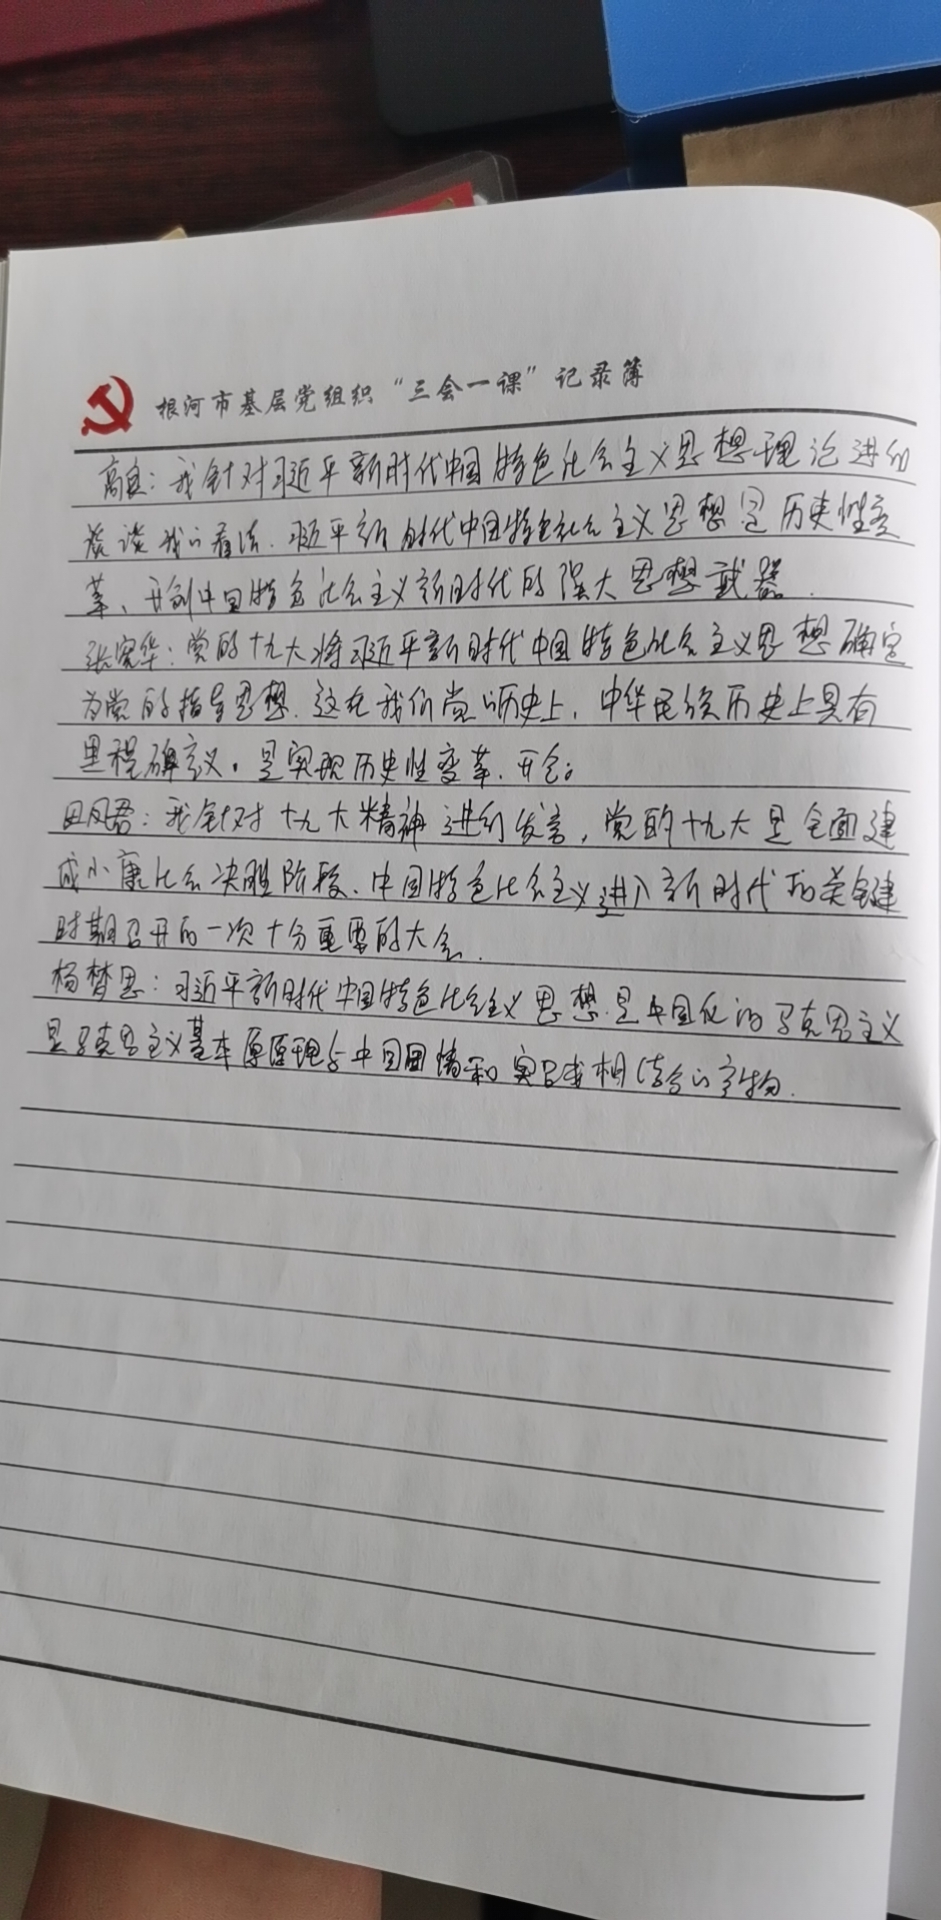 根河市基层党组织“三会一课”记录簿
我针对习近平新时代中国特色社会主义思想理论进行
谈谈我的看法.习近平新时代中国特色社会主义思想是历史性变
革、开创中国特色社会主义新时代的强大思想武器.
张宪华:党的十九大将习近平新时代中国特色社会主义思想确定
为党的指导思想.这在我们党的历史上,中华民族历史上具有
里程碑意义。是实现历史性变革、开
田凤君:我针对十九大精神进行发言,党的十九大是全面建
成小康社会决胜阶段、中国特色社会主义进入新时代的关键
时期召开的一次十分重要的大会.
杨梦思:习近平新时代中国特色社会主义思想.是中国化的马克思主义
是马克思主义基本原理与中国国情和实践相结合的产物.